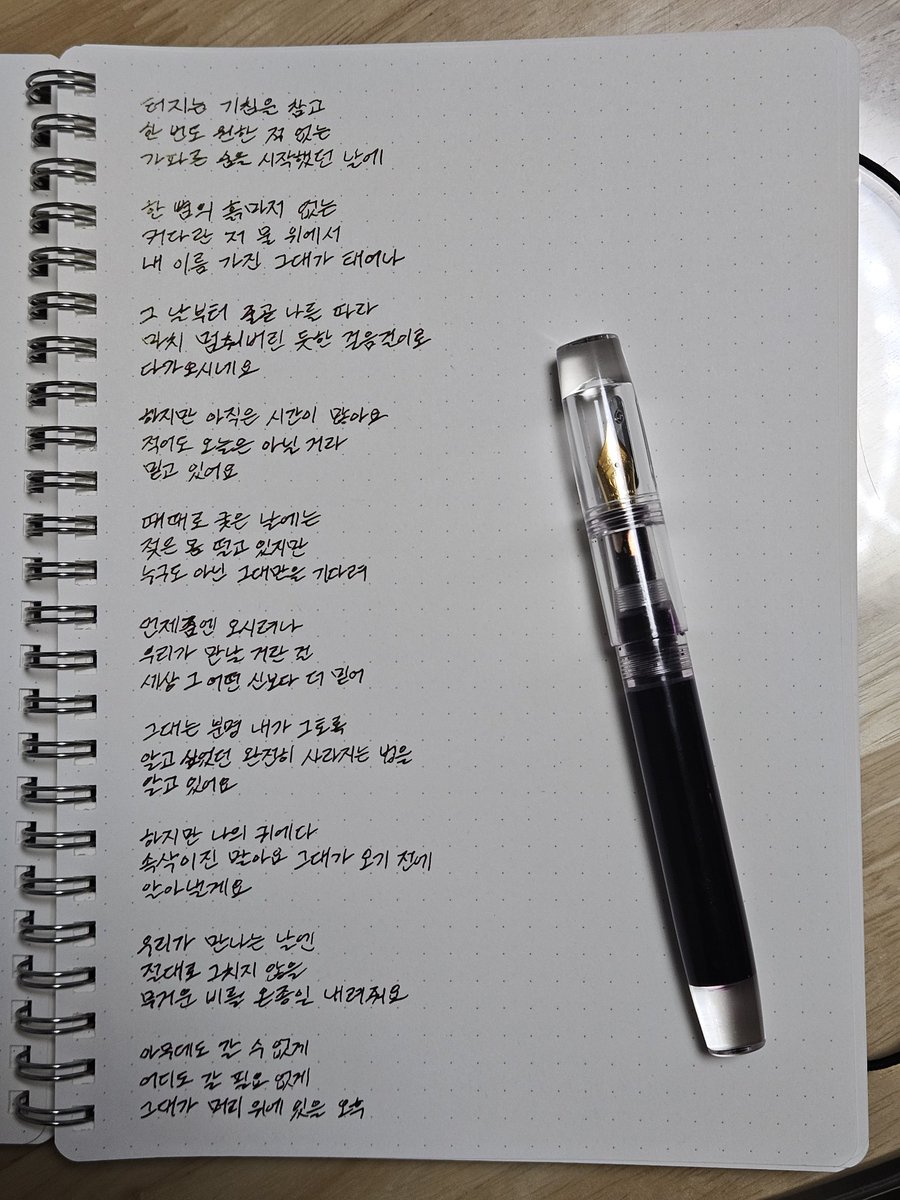 터지는 기침을 참고
한 번도 원한 적 없는
가파른 숨을 시작했던 날에
한 뼘의 흙마저 없는
커다란 저 물 위에서
내 이름 가진 그대가 태어나
그 날부터 줄곧 나를 따라
마치 멈춰버린 듯한 걸음걸이로
다가오시네요
하지만 아직은 시간이 많아요
적어도 오늘은 아닐 거라
믿고 있어요
때때로 궂은 날에는
젖은 몸 떨고 있지만
누구도 아닌 그대만을 기다려
언제쯤엔 오시려나
우리가 만날 거란 건
세상 그 어떤 신보다 더 믿어
그대는 분명 내가 그토록
알고 싶었던 완전히 사라지는 법을
알고 있어요
하지만 나의 귀에다
속삭이진 말아요 그대가 오기 전에
알아낼게요
우리가 만나는 날엔
절대로 그치지 않을
무거운 비를 온종일 내려줘요
아무데도 갈 수 없게
어디도 갈 필요 없게
그대가 머리 위에 있을 오후